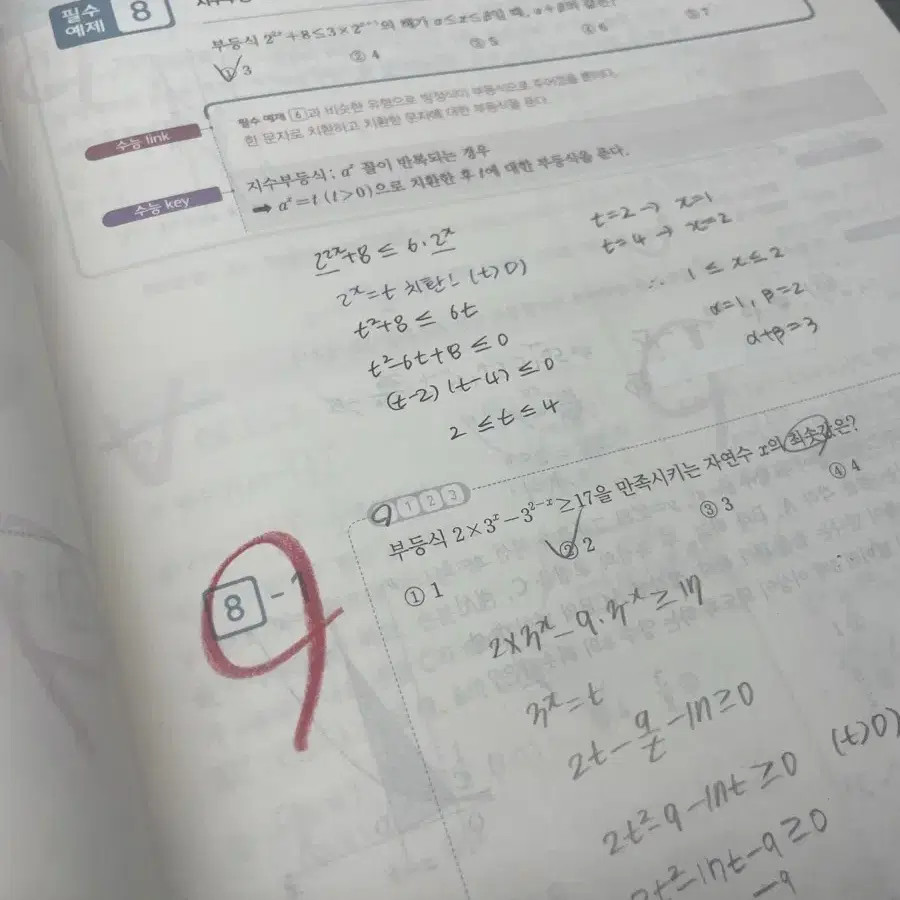 필수
예제 8
부등식 2²ˣ+8≤3×2ˣ⁺¹의 해가 α≤x≤β일 때, α+β의 값은?
① 3 ② 4 ③ 5 ④ 6 ⑤ 7
수능 link
필수 예제 6 과 비슷한 유형으로 방정식이 부등식으로 주어졌을 뿐이다.
한 문자로 치환하고 치환한 문자에 대한 부등식을 푼다.
수능 key
지수부등식: aˣ 꼴이 반복되는 경우
➡ aˣ=t (t>0)으로 치환한 후 t에 대한 부등식을 푼다.
2²ˣ+8 ≤ 6·2ˣ
2ˣ=t 치환! (t>0)
t²+8 ≤ 6t
t²-6t+8 ≤0
(t-2)(t-4) ≤0
2 ≤ t ≤ 4
t=2 → x=1
t=4 → x=2
∴ 1 ≤ x ≤ 2
α=1, β=2
α+β=3
9 1 2 3
8 -1
부등식 2×3ˣ-3²⁻ˣ≥17을 만족시키는 자연수 x의 최솟값은?
① 1 ② 2 ③ 3 ④ 4
2×3ˣ-9·3⁻ˣ≥17
3ˣ=t
2t-9/t-17≥0
2t²-9-17t≥0 (t>0)
2t²-17t-9≥0
-9